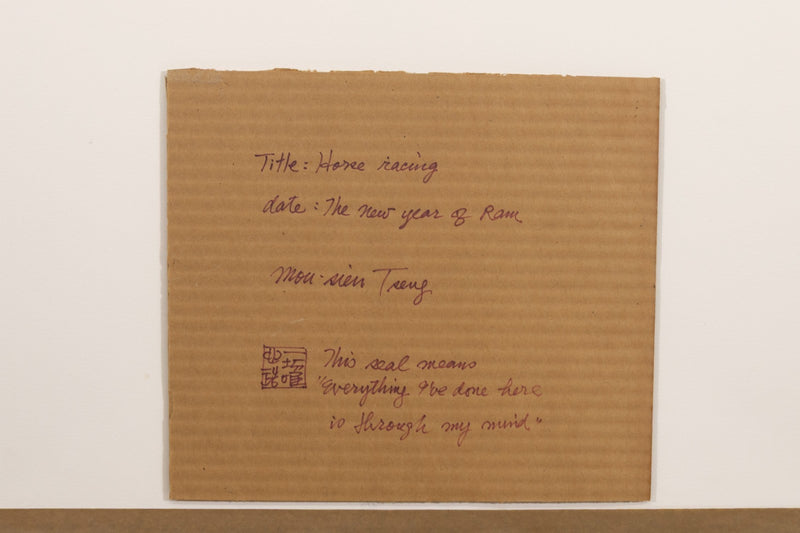 Title: Horse racing
date: The new year of Ram
Mou-sien Tseng
This seal means
"Everything I've done here
is through my mind"